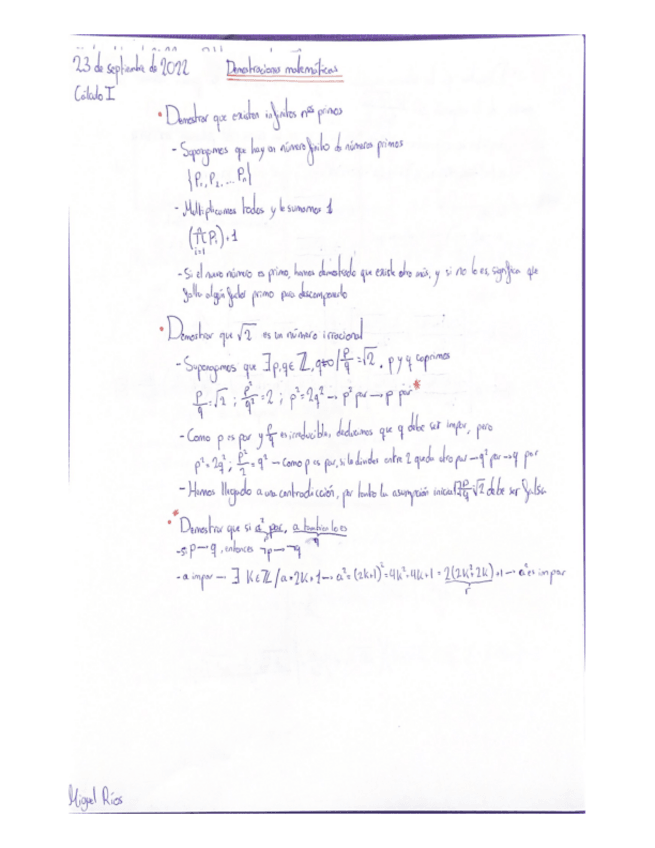 23 de septiembre de 2022
Demostraciones matemáticas
Cálculo I
• Demostrar que existen infinitos nºs primos
- Supongamos que hay un número finito de números primos
{P₁, P₂, ... Pₙ}
- Multiplicamos todos y le sumamos 1
(∏ᵢ₌₁ⁿ Pᵢ)+1
- Si el nuevo número es primo, hemos demostrado que existe otro más, y si no lo es, significa que
falta algún factor primo para descomponerlo
• Demostrar que √2 es un número irracional
- Supongamos que ∃p,q∈ℤ, q≠0 / p/q = √2, p y q coprimos
p/q = √2 ; p²/q² = 2 ; p² = 2q² → p² par → p par*
- Como p es par y p/q es irreducible, deducimos que q debe ser impar, pero
p² = 2q² ; p²/2 = q² – como p es par, si lo divides entre 2 queda otro par – q² par → q par
- Hemos llegado a una contradicción, por tanto la asunción inicial p/q = √2 debe ser falsa
* • Demostrar que si a² par, a también lo es
q
- si p → q, entonces ¬p → ¬q
- a impar → ∃ k∈ℤ / a = 2k+1 → a² = (2k+1)² = 4k²+4k+1 = 2(2k²+2k)+1 → a² es impar
r
Miguel Ríos